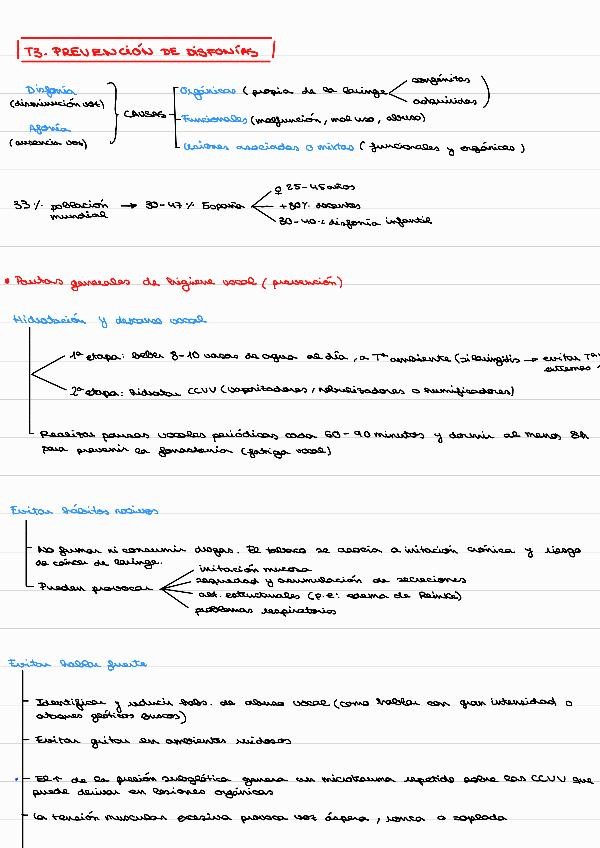 T3. PREVENCIÓN DE DISFONÍAS
Disfonía
(disminución voz)
Afonía
(ausencia voz)
CAUSAS
Orgánicas (propia de la laringe
congénitas
adquiridas)
Funcionales (malfunción, mal uso, abuso)
Lesiones asociadas o mixtas (funcionales y orgánicas)
33% población
mundial
→ 33-47% España
♀ 25-45 años
+80% docentes
30-40% disfonía infantil
• Pautas generales de higiene vocal (prevención)
Hidratación y descanso vocal
1ª etapa: beber 8-10 vasos de agua al día, a Tª ambiente (si laringitis → evitar Tª
extremas
2ª etapa: hidratar CCVV (vaporizadores, nebulizadores o humificadores)
Realizar pausas vocales periódicas cada 60-90 minutos y dormir al menos 8h
para prevenir la fonastenia (fatiga vocal)
Evitar hábitos nocivos
No fumar ni consumir drogas. El tabaco se asocia a irritación crónica y riesgo
de cáncer de laringe.
Pueden provocar
irritación mucosa
sequedad y acumulación de secreciones
alt. estructurales (p.e: edema de Reinke)
problemas respiratorios
Evitar hablar fuerte
Identificar y reducir hábs. de abuso vocal (como hablar con gran intensidad o
ataques glóticos bruscos)
Evitar gritar en ambientes ruidosos
El ↑ de la presión subglótica genera un microtrauma repetido sobre las CCVV que
puede derivar en lesiones orgánicas
La tensión muscular excesiva provoca voz áspera, ronca o soplada